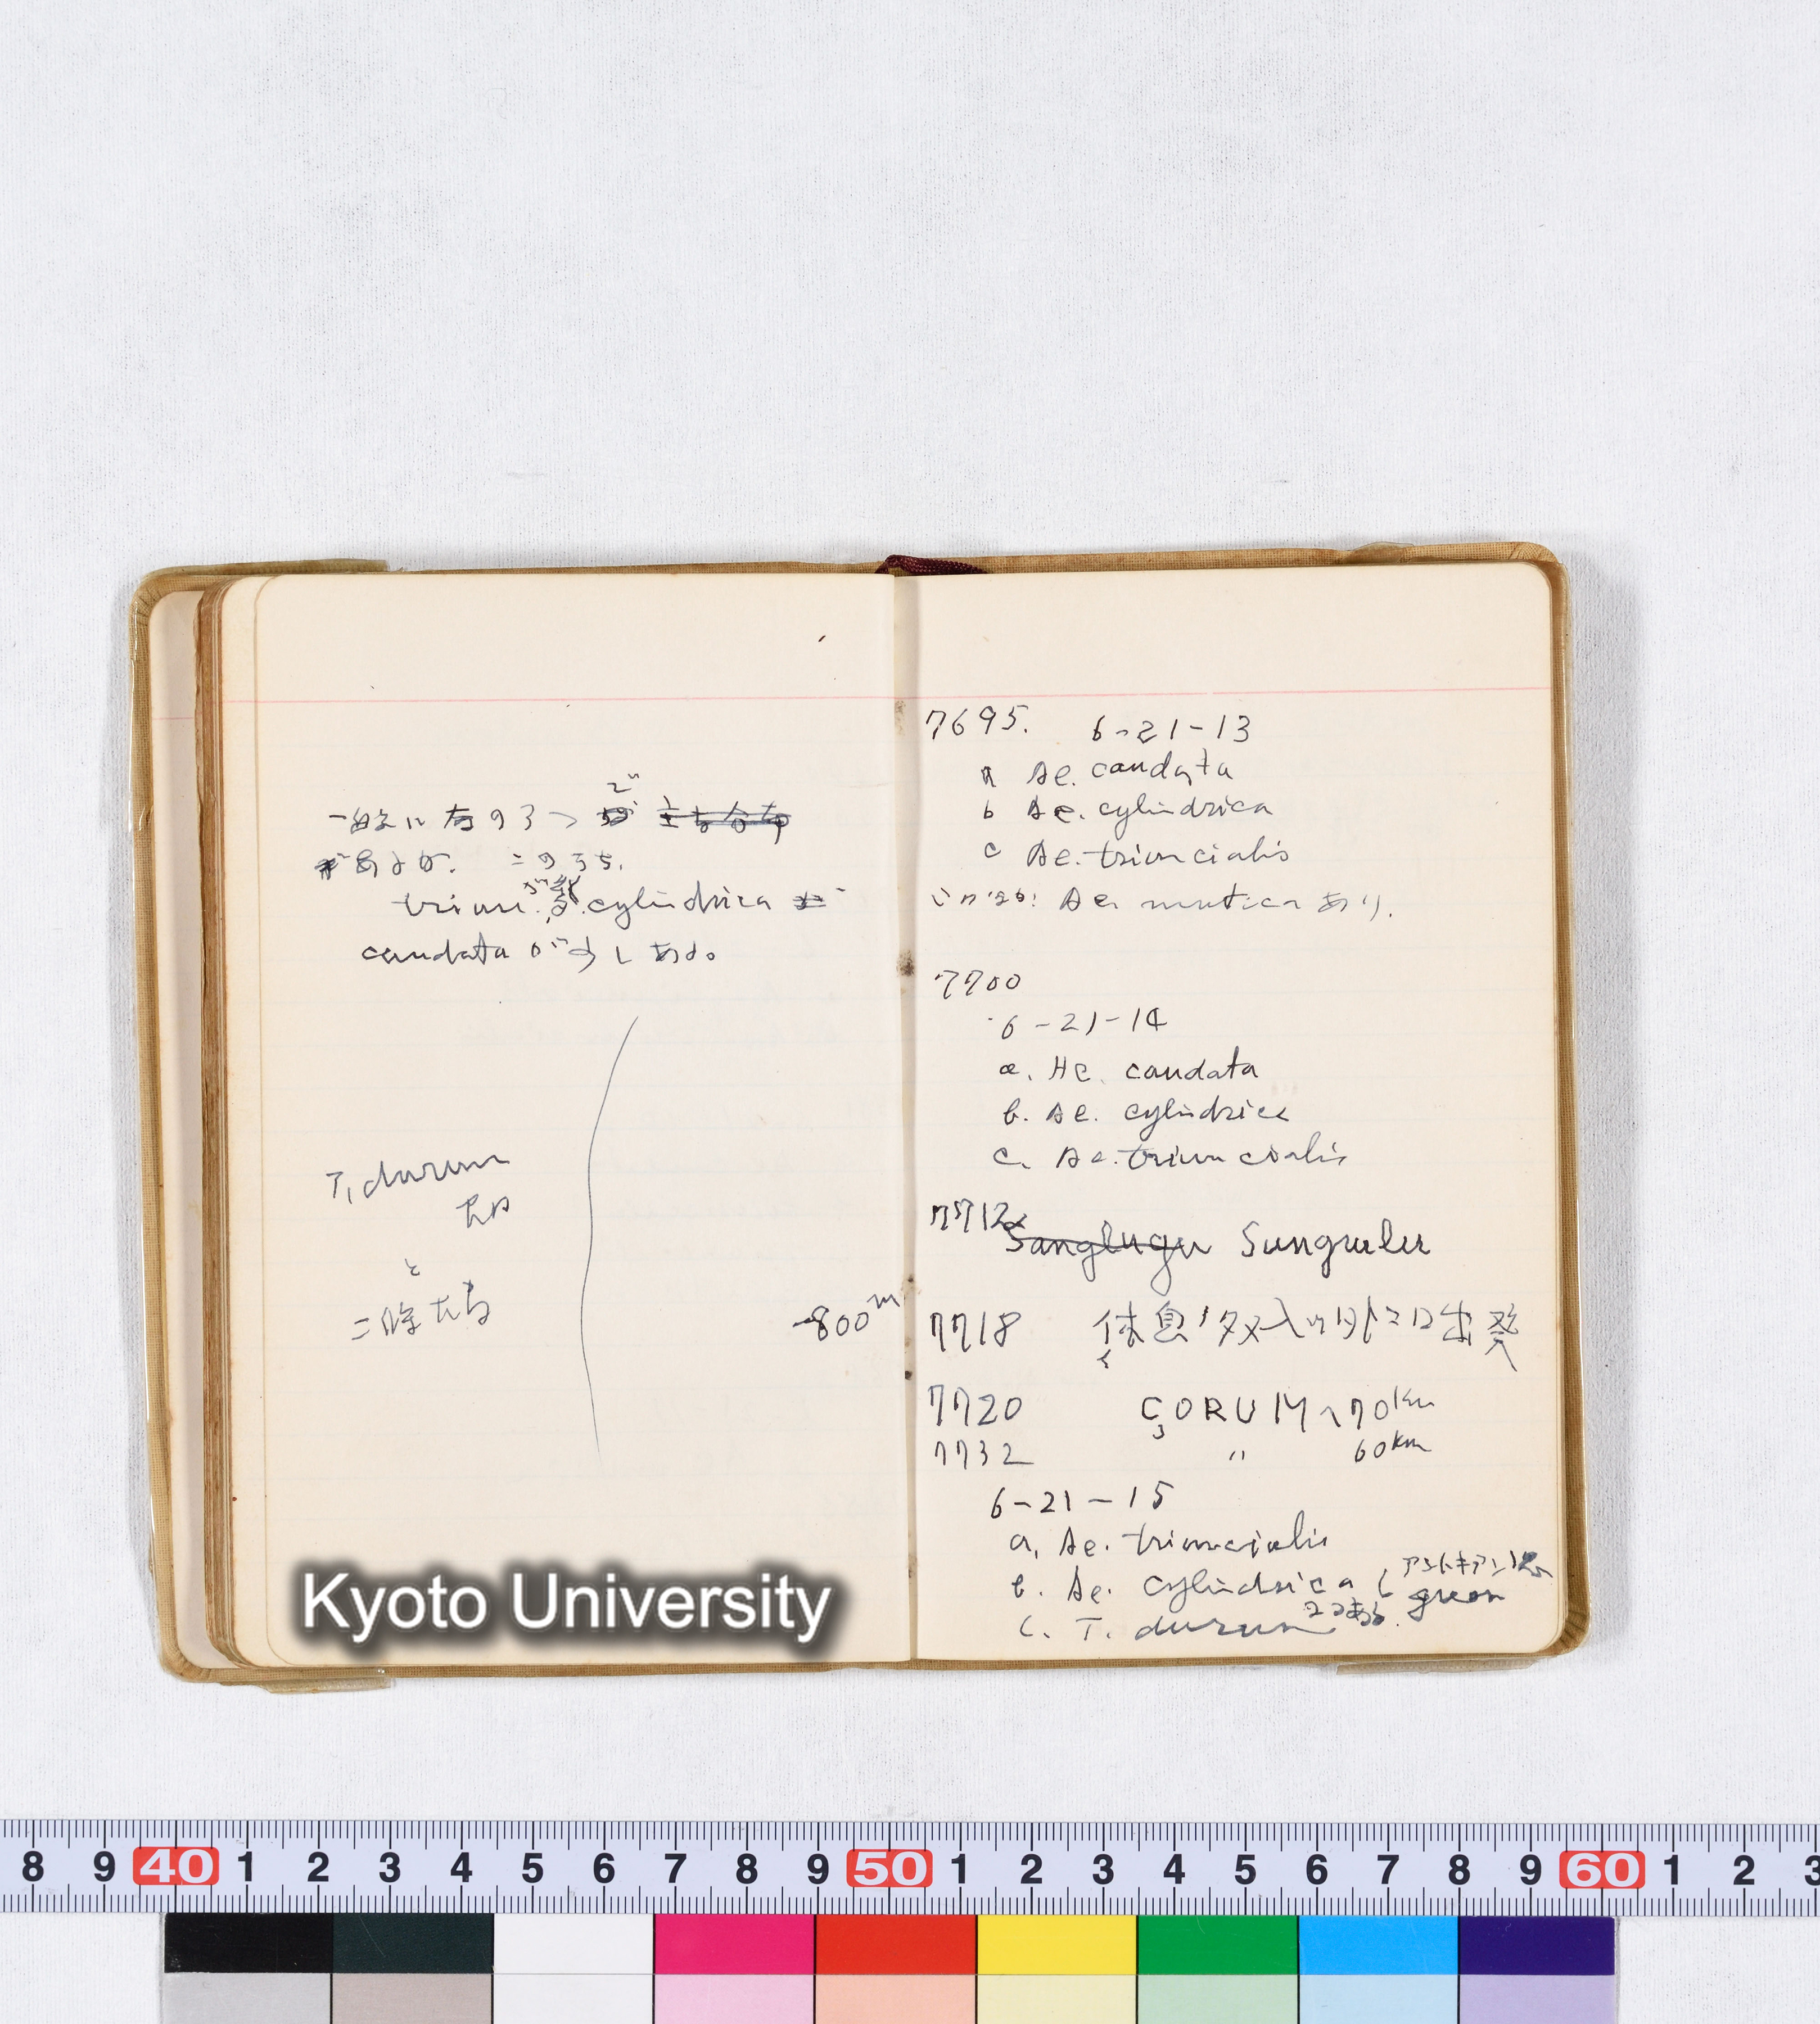 一般に右の3つ
があるが. このうち,
triun. cylindrica
caudata が少しある。
T. durum
と
二条大麦
800m
7695. 6-21-13
a Ae. caudata
b Ae. cylindrica
c Ae. triuncialis
Ae. mutica あり.
7700
6-21-14
a. Ae. caudata
b. Ae. cylindrica
c. Ae. triuncialis
7712 Sanglugu Sungurlu
7718 休息 出発
7720 ÇORUM へ 70km
7732 〃 60km
6-21-15
a. Ae. triuncialis
b. Ae. cylindrica { アントキアン
green
2つある.
c. T. durum
Kyoto University
8 9 40 1 2 3 4 5 6 7 8 9 50 1 2 3 4 5 6 7 8 9 60 1 2 3